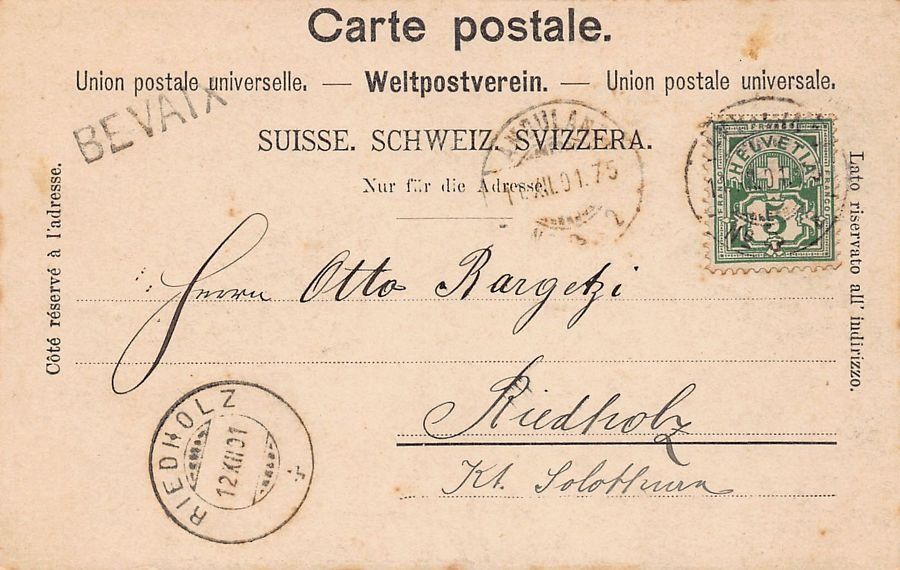 Carte postale.
Union postale universelle. — Weltpostverein. — Union postale universale.
BEVAIX
SUISSE. SCHWEIZ. SVIZZERA.
Nur für die Adresse.
Côté réservé à l'adresse.
Lato riservato all' indirizzo.
AMBULANT
XII.01.75
2
FRANCO
HELVETIA
FRANCO
FRANCO
5
Herrn Otto Bargetzi
Riedholz
Kt. Solothurn
RIEDHOLZ
12.XII.01